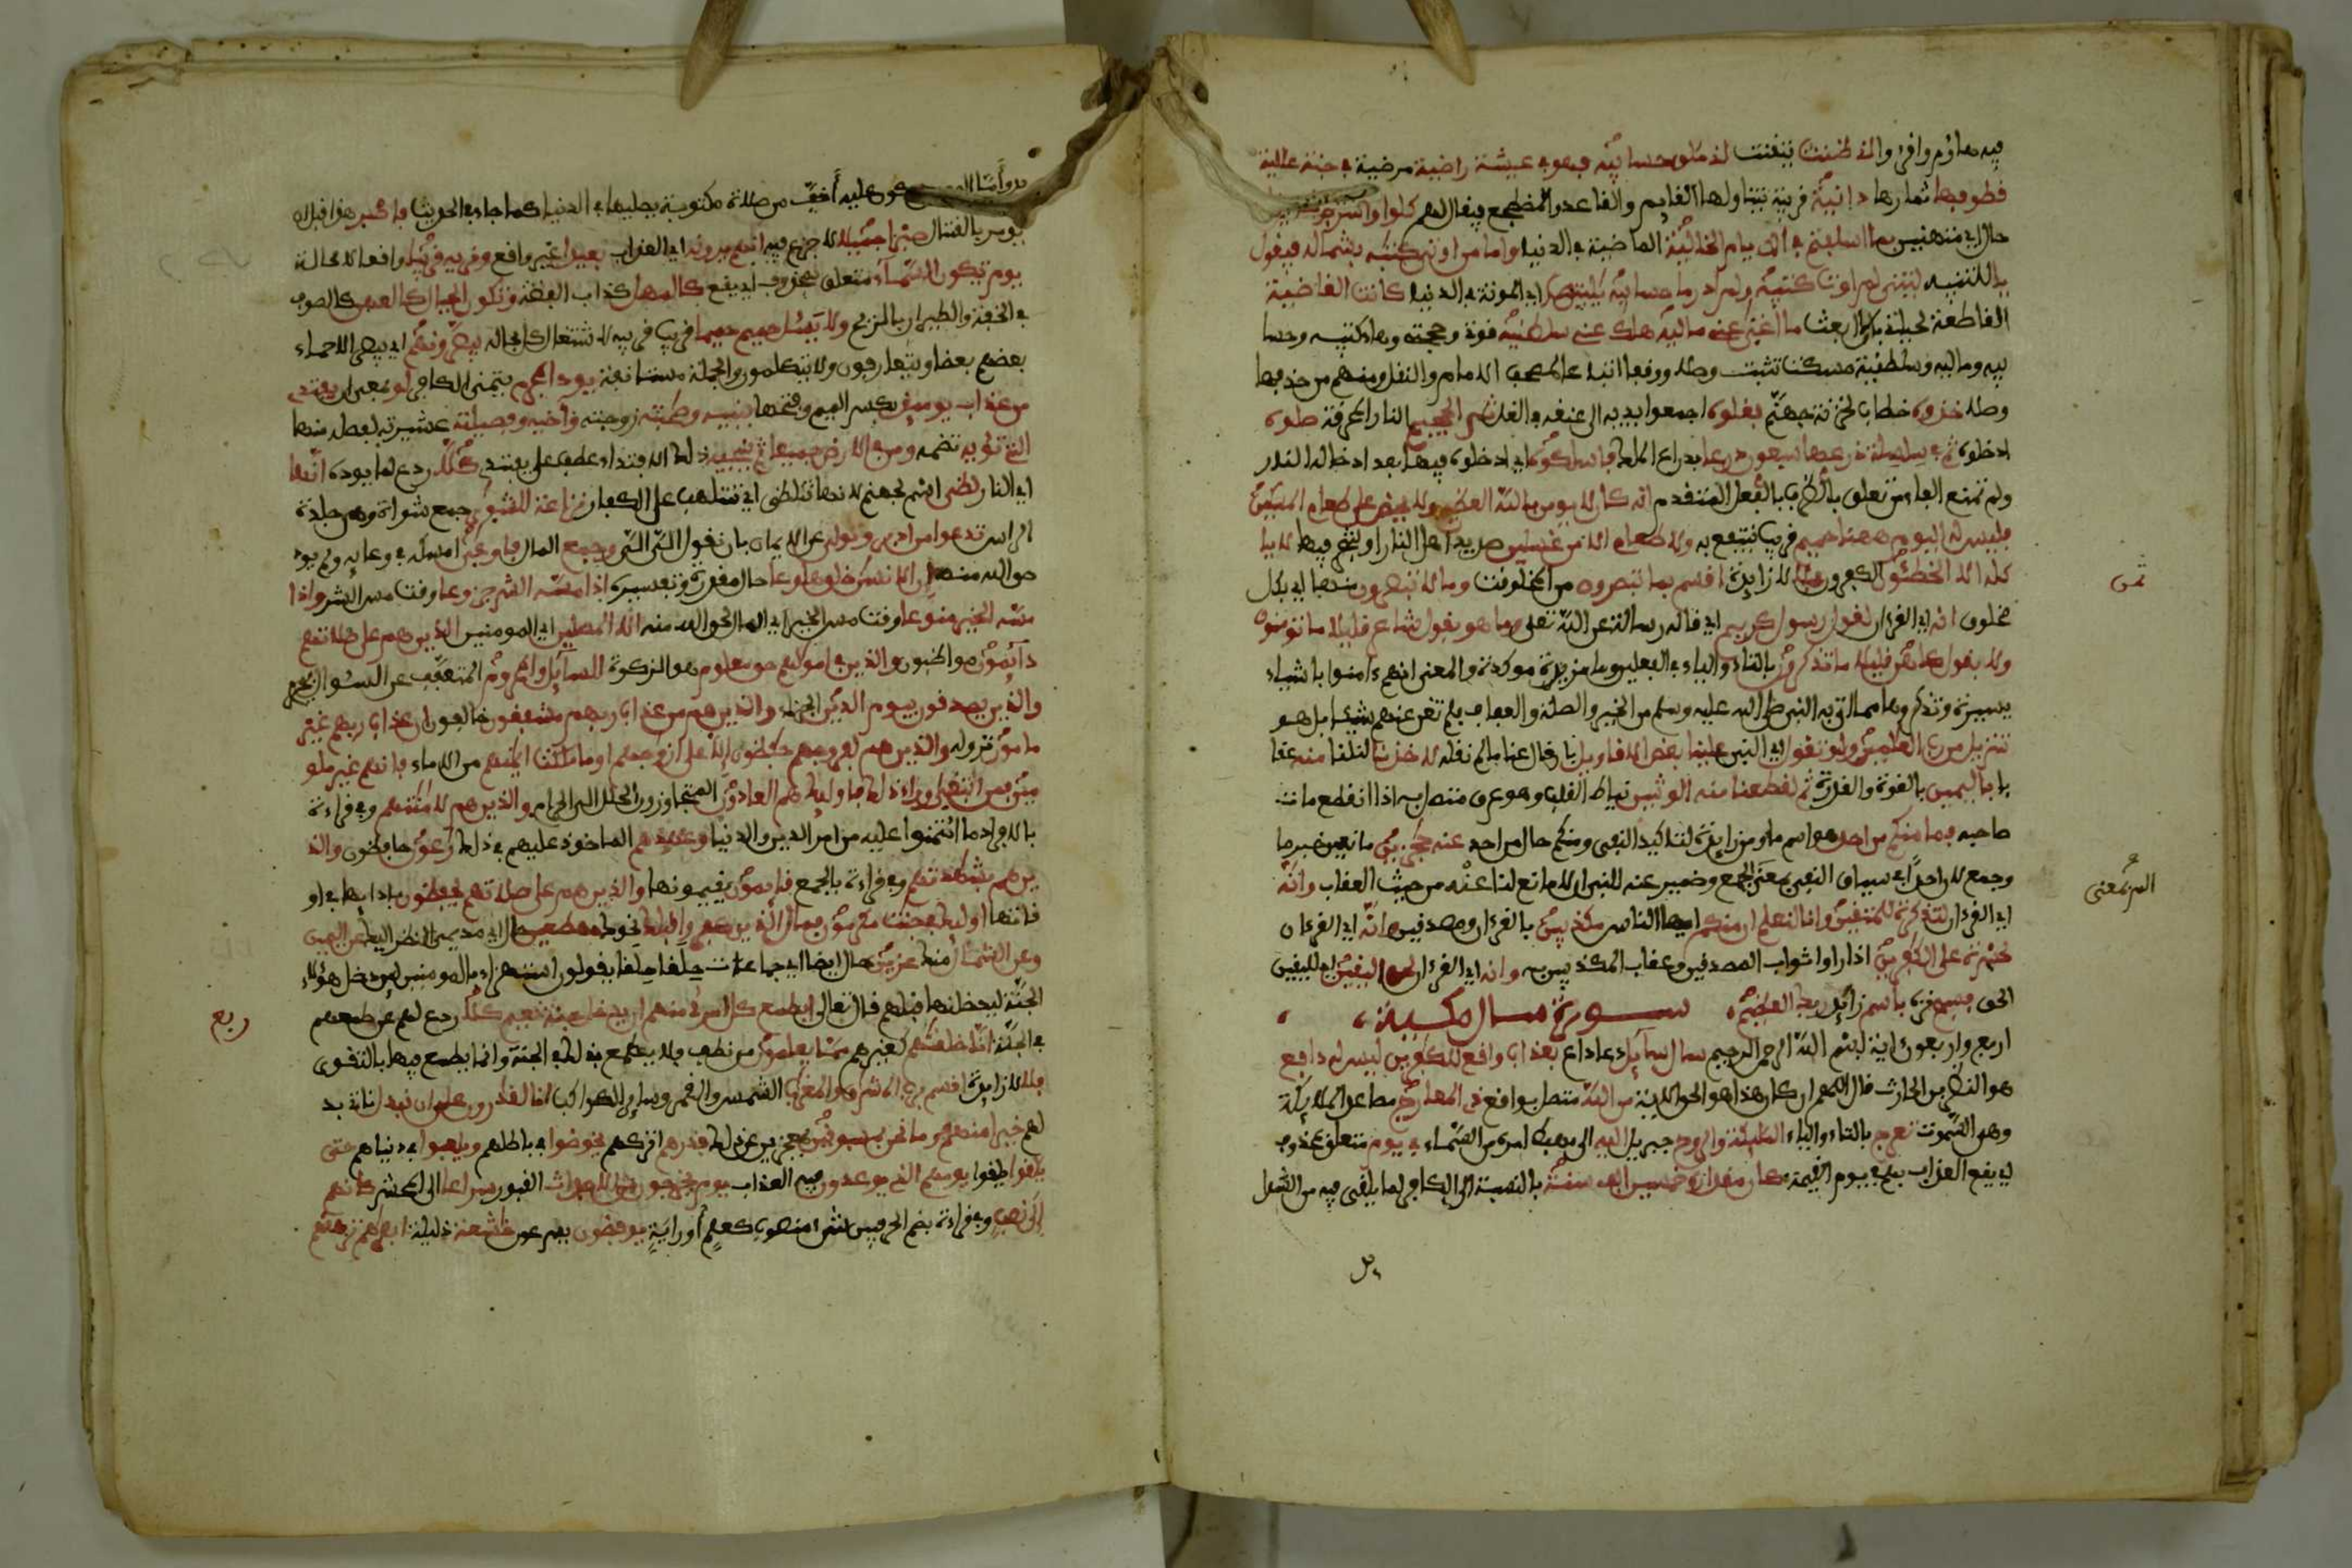 فيه هاؤم وافرءوا إني ظننت تيقنت أني ملق حسابيه فهو في عيشة راضية مرضية في جنة عالية
قطوفها ثمارها دانية قريبة يتناولها القايم والقاعد والمضطجع فيقال لهم كلوا واشربوا هنيئا
حال اي متهنيين بما اسلفتم في الايام الخالية الماضية في الدنيا واما من اوتي كتبه بشماله فيقول
يا للتنبيه ليتني لم اوت كتبيه ولم ادر ما حسابيه يليتها اي الموتة في الدنيا كانت القاضية
القاطعة لحياتي بان لا ابعث ما اغنى عني ماليه هلك عني سلطنيه قوتي وحجتي وهاء كتبيه وحسا
بيه وماليه وسلطنيه للسكت تثبت وصلا ووقفا اتباعا لمصحف الامام والنقل ومنهم من حذفها
وصلا خذوه خطاب لخزنة جهنم فغلوه اجمعوا يديه الى عنقه في الغل ثم الجحيم النار المحرقة صلوه
ادخلوه ثم في سلسلة ذرعها سبعون ذراعا بذراع الملك فاسلكوه اي ادخلوه فيها بعد ادخاله النار
ولم تمنع الفاء من تعلق الظرف بالفعل المتقدم انه كان لا يومن بالله العظيم ولا يحض على طعام المسكين
فليس له اليوم ههنا حميم قريب ينتفع به ولا طعام الا من غسلين صديد اهل النار او شجر فيها لا يا
كله الا الخطئون الكفرون فلا لا زايدة اقسم بما تبصرون من المخلوقت وما لا تبصرون منها اي بكل
مخلوق انه اي القرءان لقول رسول كريم اي قاله رسالة عن الله تعلى وما هو بقول شاعر قليلا ما تومنون
ولا بقول كاهن قليلا ما تذكرون بالتاء والياء في الفعلين وما مزيدة موكدة والمعنى انهم ءامنوا باشياء
يسيرة وتذكروها مما اتى به النبي صلى الله عليه وسلم من الخير والصلة والعفاف فلم تغن عنهم شيئا بل هو
تنزيل من رب العلمين ولو تقول اي النبي علينا بعض الاقاويل بان قال عنا ما لم نقله لاخذنا لنلنا منه عقا
با باليمين بالقوة والقدرة ثم لقطعنا منه الوتين نياط القلب وهو عرق متصل به اذا انقطع مات
صاحبه فما منكم من احد هو اسم ما ومن زايدة لتاكيد النفي ومنكم حال من احد عنه حجزين مانعين خبر ما
وجمع لان احدا في سياق النفي بمعنى الجمع وضمير عنه للنبي اي لا مانع لنا عنه من حيث العقاب وانه
اي القرءان لتذكرة للمتقين وانا لنعلم ان منكم ايها الناس مكذبين بالقرءان ومصدقين وانه اي القرءان
لحسرة على الكفرين اذا راوا ثواب المصدقين وعقاب المكذبين به وانه اي القرءان لحق اليقين اي لليقين
الحق فسبح نزه باسم زايد ربك العظيم سورة سال مكية
اربع واربعون ءاية بسم الله الرحمن الرحيم سال سايل دعا داع بعذاب واقع للكفرين ليس له دافع
هو النضر بن الحارث قال اللهم ان كان هذا هو الحق الاية من الله متصل بواقع ذي المعارج مصاعد الملايكة
وهي السموت تعرج بالتاء والياء الملئكة والروح جبريل اليه الى مهبط امره من السماء في يوم متعلق بمحذوف
اي يقع العذاب بهم في يوم القيمة كان مقداره خمسين الف سنة بالنسبة الى الكافر لما يلقى فيه من الشدايد
ثمن
المعنى
واما المومن فيكون عليه أخف من صلاة مكتوبة يصليها في الدنيا كما جاء في الحديث فاصبر هذا قبل ان
يومر بالقتال صبرا جميلا لا جزع فيه انهم يرونه اي العذاب بعيدا غير واقع ونريه قريبا واقعا لا محالة
يوم تكون السماء متعلق بمحذوف اي يقع كالمهل كذايب الفضة وتكون الجبال كالعهن كالصوف
في الخفة والطيران بالريح ولا يسئل حميم حميما قريب قريبه لاشتغال كل بحاله يبصرونهم اي يبصر الاحماء
بعضهم بعضا ويتعارفون ولا يتكلمون والجملة مستانفة يود المجرم يتمنى الكافر لو بمعنى ان يفتدي
من عذاب يوميذ بكسر الميم وفتحها ببنيه وصحبته زوجته واخيه وفصيلته عشيرته لفصله منها
التي تؤيه تضمه ومن في الارض جميعا ثم ينجيه ذلك الافتداء عطف على يفتدي كلا ردع لما يوده انها
اي النار لظى اسم لجهنم لانها تتلظى اي تتلهب على الكفار نزاعة للشوى جمع شواة وهي جلدة
الراس تدعوا من ادبر وتولى عن الايمان بان تقول الي الي وجمع المال فاوعى امسكه في وعايه ولم يود
حق الله منه ان الانسن خلق هلوعا حال مقدرة وتفسيره اذا مسه الشر جزوعا وقت مس الشر واذا
مسه الخير منوعا وقت مس الخير اي المال لحق الله منه الا المصلين اي المومنين الذين هم على صلاتهم
دايمون مواظبون والذين في امولهم حق معلوم هو الزكوة للسايل والمحروم المتعفف عن السوال فيحرم
والذين يصدقون بيوم الدين الجزاء والذين هم من عذاب ربهم مشفقون خايفون ان عذاب ربهم غير
مامون نزوله والذين هم لفروجهم حفظون الا على ازوجهم او ما ملكت ايمنهم من الاماء فانهم غير ملو
مين فمن ابتغى وراء ذلك فاوليك هم العادون المتجاوزون الحلال الى الحرام والذين هم لامنتهم وفي قراءة
بالافراد ما ائتمنوا عليه من امر الدين والدنيا وعهدهم الماخوذ عليهم في ذلك رعون حافظون والذ
ين هم بشهدتهم وفي قراءة بالجمع قايمون يقيمونها والذين هم على صلاتهم يحفظون بادايها في او
قاتها اوليك في جنت مكرمون فمال الذين كفروا قبلك نحوك مهطعين حال اي مديمي النظر اليك عن اليمين
وعن الشمال منك عزين حال ايضا اي جماعات حلقا حلقا يقولون استهزاء بالمومنين لين دخل هؤلاء
الجنة ليدخلنها قبلهم قال تعالى ايطمع كل امرئ منهم ان يدخل جنة نعيم كلا ردع لهم عن طمعهم
في الجنة انا خلقنهم كغيرهم مما يعلمون من نطف فلا يطمع بذلك في الجنة وانما يطمع فيها بالتقوى
فلا لا زايدة اقسم برب المشرق والمغرب الشمس والقمر وساير الكواكب انا لقدرون على ان نبدل ناتي بد
لهم خيرا منهم وما نحن بمسبوقين بعجزين عن ذلك فذرهم اتركهم يخوضوا في باطلهم ويلعبوا في دنياهم حتى
يلقوا يلقوا يومهم الذي يوعدون فيه العذاب يوم يخرجون من الاجداث القبور سراعا الى المحشر كانهم
الى نصب وفي قراءة بضم الحرفين شيء منصوب كعلم أو راية يوفضون يسرعون خاشعة ذليلة ابصرهم ترهقهم
ربع